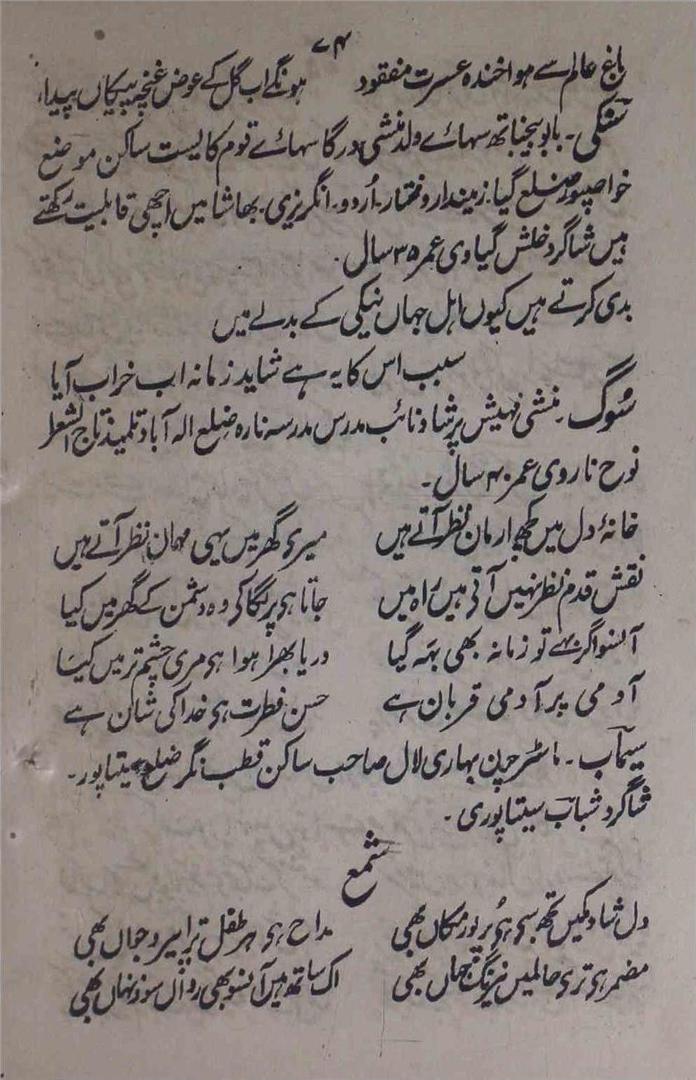 ۷۴
باغ عالم سے ہوا خندہ عسرت مفقود ہونگے اب گل کے عوض غنچہ پیکاں پیدا
بابو بیجناتھ سہائے ولد منشی درگا سہائے قوم کایست ساکن موضع
خواصپور ضلع گیا۔ زمیندار و مختار۔ اُردو۔ انگریزی۔ بھاشا میں اچھی قابلیت رکھتے
ہیں شاگرد خلش گیاوی عمر ۳۵ سال۔
بدی کرتے ہیں کیوں اہل جہاں نیکی کے بدلے میں
سبب اس کا یہ ہے شاید زمانہ اب خراب آیا
سُوگ۔ منشی مہیش پرشاد نائب مدرس مدرسہ نارہ ضلع الہ آباد تلمیذ تاج الشعرا
نوح ناروی عمر ۴۰ سال۔
خانۂ دل میں کچھ ارمان نظر آتے ہیں میری گھر میں یہی مہمان نظر آتے ہیں
نقش قدم نظر نہیں آتی ہیں راہ میں جاتا ہی پر لگا کی وہ دشمن کے گھر میں کیا
آنسو اگر بہے تو زمانہ بھی بہہ گیا دریا بھرا ہوا ہی مری چشم تر میں کیا
آدمی پر آدمی قربان ہے حسن فطرت ہی خدا کی شان ہے
سیماب۔ ماسٹر چہن بہاری لال صاحب ساکن قطب نگر ضلع سیتاپور۔
شاگرد شباب سیتاپوری۔
شمع
دل شاد مکیں تجھ سی ہی پر نور مکاں بھی مداح ہی ہر طفل ترا پیر و جواں بھی
مضمر ہی تری حالمیں نیرنگ جہاں بھی اک ساتھ ہیں آنسو بھی رواں سوز نہاں بھی